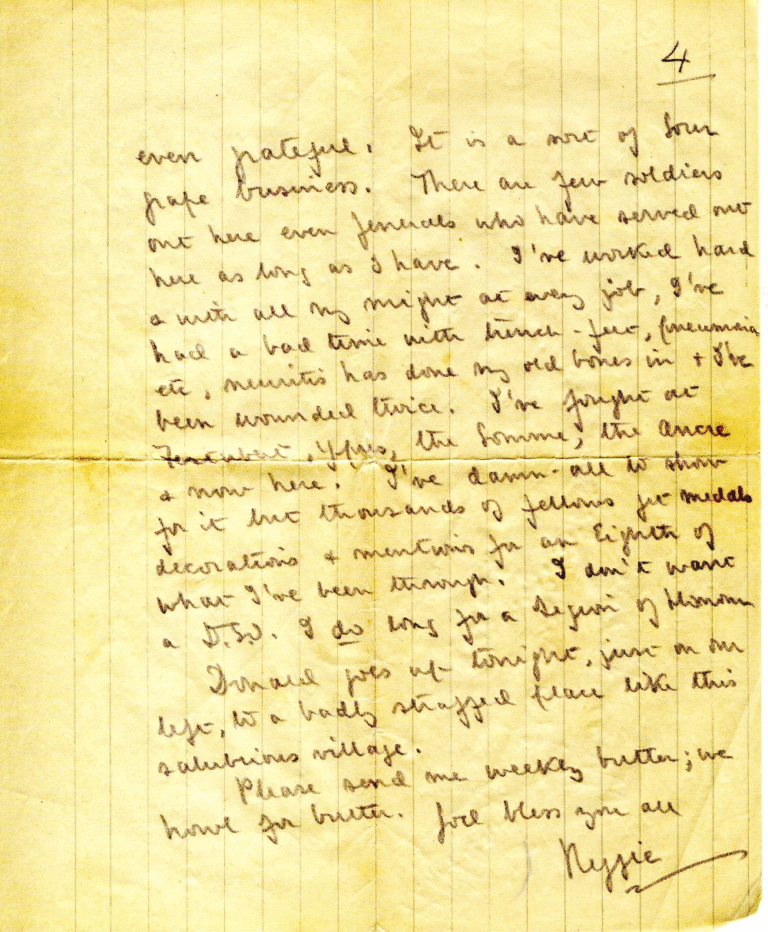 4
even grateful. It is a sort of Sour
grape business. There are few soldiers
out here even Generals who have served out
here as long as I have. I've worked hard
& with all my might at every job, I've
had a bad time with trench-feet, pneumonia
etc, neuritis has done my old bones in & I've
been wounded twice. I've fought at
Festubert, Ypres, the Somme, the Ancre
& now here. I've damn-all to show
for it but thousands of fellows get medals
decorations & mentions for an Eighth of
what I've been through. I don't want
a D.S.O. I do long for a Legion of Honour
Donald goes up tonight, just on our
left, to a badly straffed place like this
salubrious village.
Please send me weekly butter; we
howl for butter. God bless you all